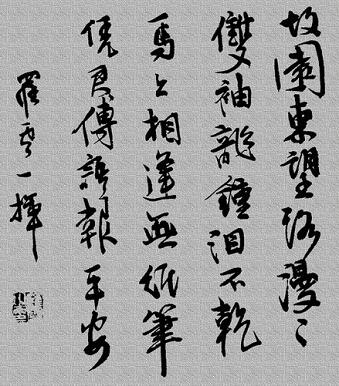 故園東望路漫〻
雙袖龍鍾泪不乾
馬上相逢無紙筆
凭君傳語報平安
一揮